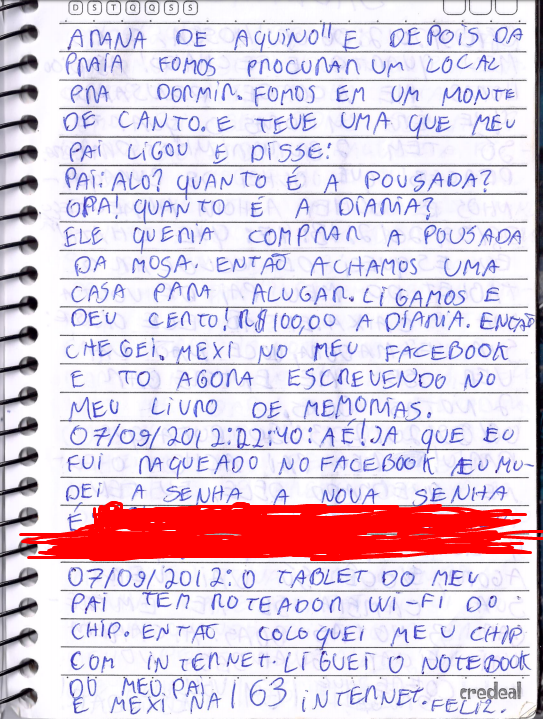 D S T Q Q S S
ARARA DE AQUINO" E DEPOIS DA
PRAIA FOMOS PROCURAR UM LOCAL
PRA DORMIR. FOMOS EM UM MONTE
DE CANTO. E TEVE UMA QUE MEU
PAI LIGOU E DISSE:
PAI: ALO? QUANTO É A POUSADA?
OPA! QUANTO É A DIARIA?
ELE QUERIA COMPRAR A POUSADA
DA MOSA. ENTÃO ACHAMOS UMA
CASA PARA ALUGAR. LIGAMOS E
DEU CERTO! R$100,00 A DIARIA. ENTÃO
CHEGEI. MEXI NO MEU FACEBOOK
E TO AGORA ESCREVENDO NO
MEU LIVRO DE MEMORIAS.
07/09/2012:22:40: AÉ! JA QUE EU
FUI RAQUEADO NO FACEBOOK EU MU-
DEI A SENHA A NOVA SENHA
É
07/09/2012: O TABLET DO MEU
PAI TEM ROTEADOR WI-FI DO
CHIP. ENTÃO COLOQUEI MEU CHIP
COM INTERNET. LIGUEI O NOTEBOOK
DO MEU PAI
E MEXI NA INTERNET. FELIZ.
163
credeal